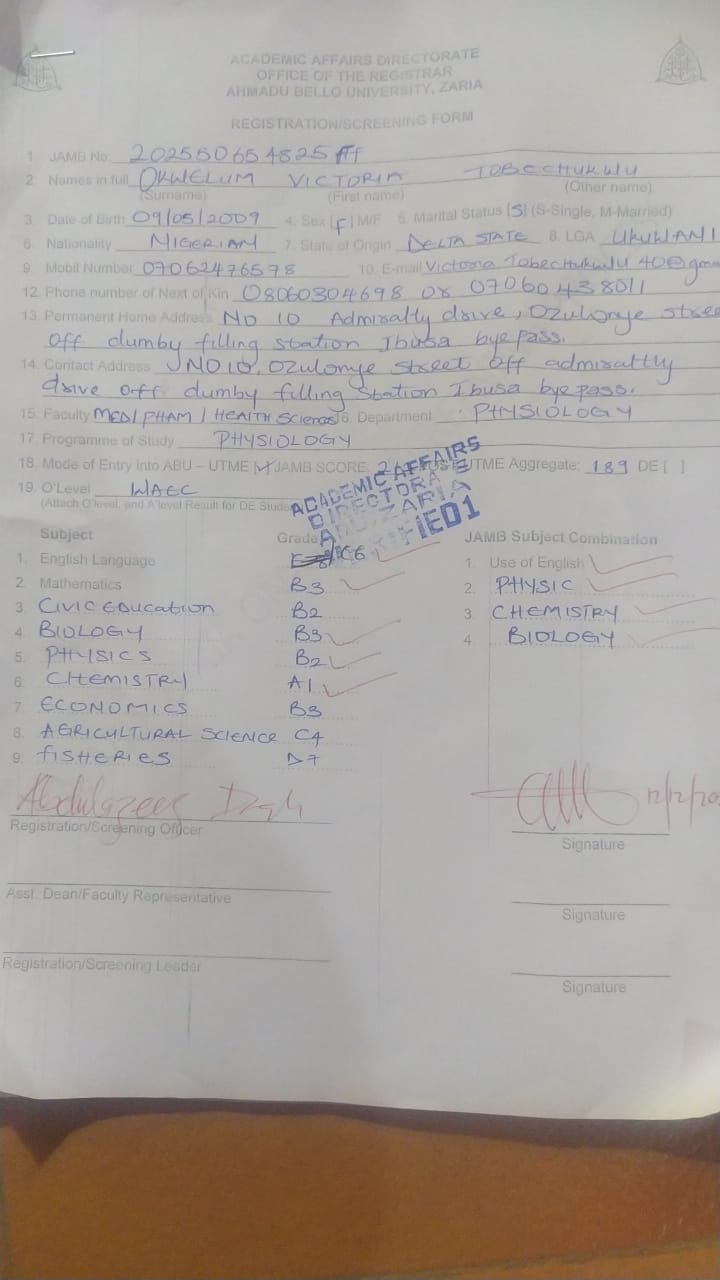 ACADEMIC AFFAIRS DIRECTORATE
OFFICE OF THE REGISTRAR
AHMADU BELLO UNIVERSITY, ZARIA
REGISTRATION/SCREENING FORM
1. JAMB No: 202550654825FF
2. Names in full OKWELUM VICTORIA TOBECHUKWU
(Surname) (First name) (Other name)
3. Date of Birth 09/05/2009 4. Sex |F| M/F 5. Marital Status |S| (S-Single, M-Married)
6. Nationality NIGERIAN 7. State of Origin DELTA STATE 8. LGA UKUWANI
9. Mobil Number 07062476578 10. E-mail Victoria Tobechukwu 40@gma
12. Phone number of Next of Kin 08060304698 or 07060438011
13. Permanent Home Address NO 10 Admiralty drive, Ozulonye street
off dumby filling station Ibusa bye pass.
14. Contact Address NO 10, Ozulonye street off admiralty
drive off dumby filling station Ibusa bye pass.
15. Faculty MED/PHAM/HEALTH Sciences 16. Department PHYSIOLOGY
17. Programme of Study PHYSIOLOGY
18. Mode of Entry into ABU – UTME [✓] JAMB SCORE: UTME Aggregate: 189 DE [ ]
19. O'Level WAEC
(Attach O'level, and A'level Result for DE
ACADEMIC AFFAIRS
DIRECTORATE
ABU, ZARIA
Subject Grade JAMB Subject Combination
1. English Language C6 1. Use of English
2. Mathematics B3 2. PHYSIC
3. CIVIC EDUCATION B2 3. CHEMISTRY
4. BIOLOGY B3 4. BIOLOGY
5. PHYSICS B2
6. CHEMISTRY A1
7. ECONOMICS B3
8. AGRICULTURAL SCIENCE C4
9. fISHERIES D7
Abdulazeez 12/12/20
Registration/Screening Officer Signature
Asst. Dean/Faculty Representative Signature
Registration/Screening Leader Signature